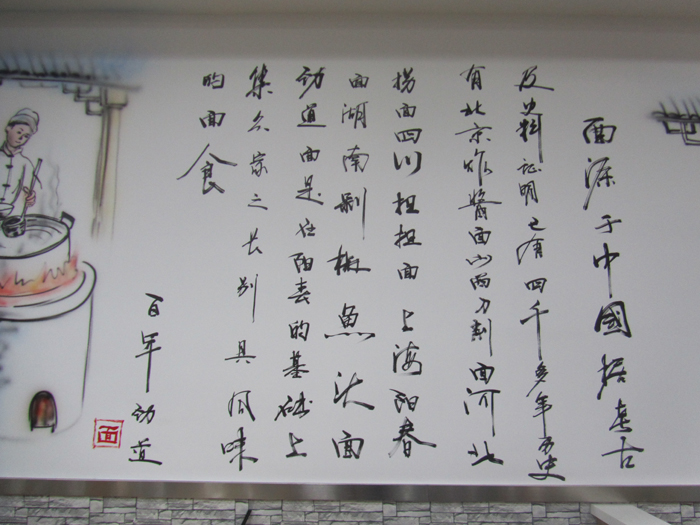 面源于中國据考古
及史料证明已有四千多年历史
有北京炸醬面山西刀削面河北
捞面四川担担面上海阳春
面湖南剁椒魚汤面
劲道面是在阳春的基础上
集众家之长别具风味
的面食
百年劲道
面